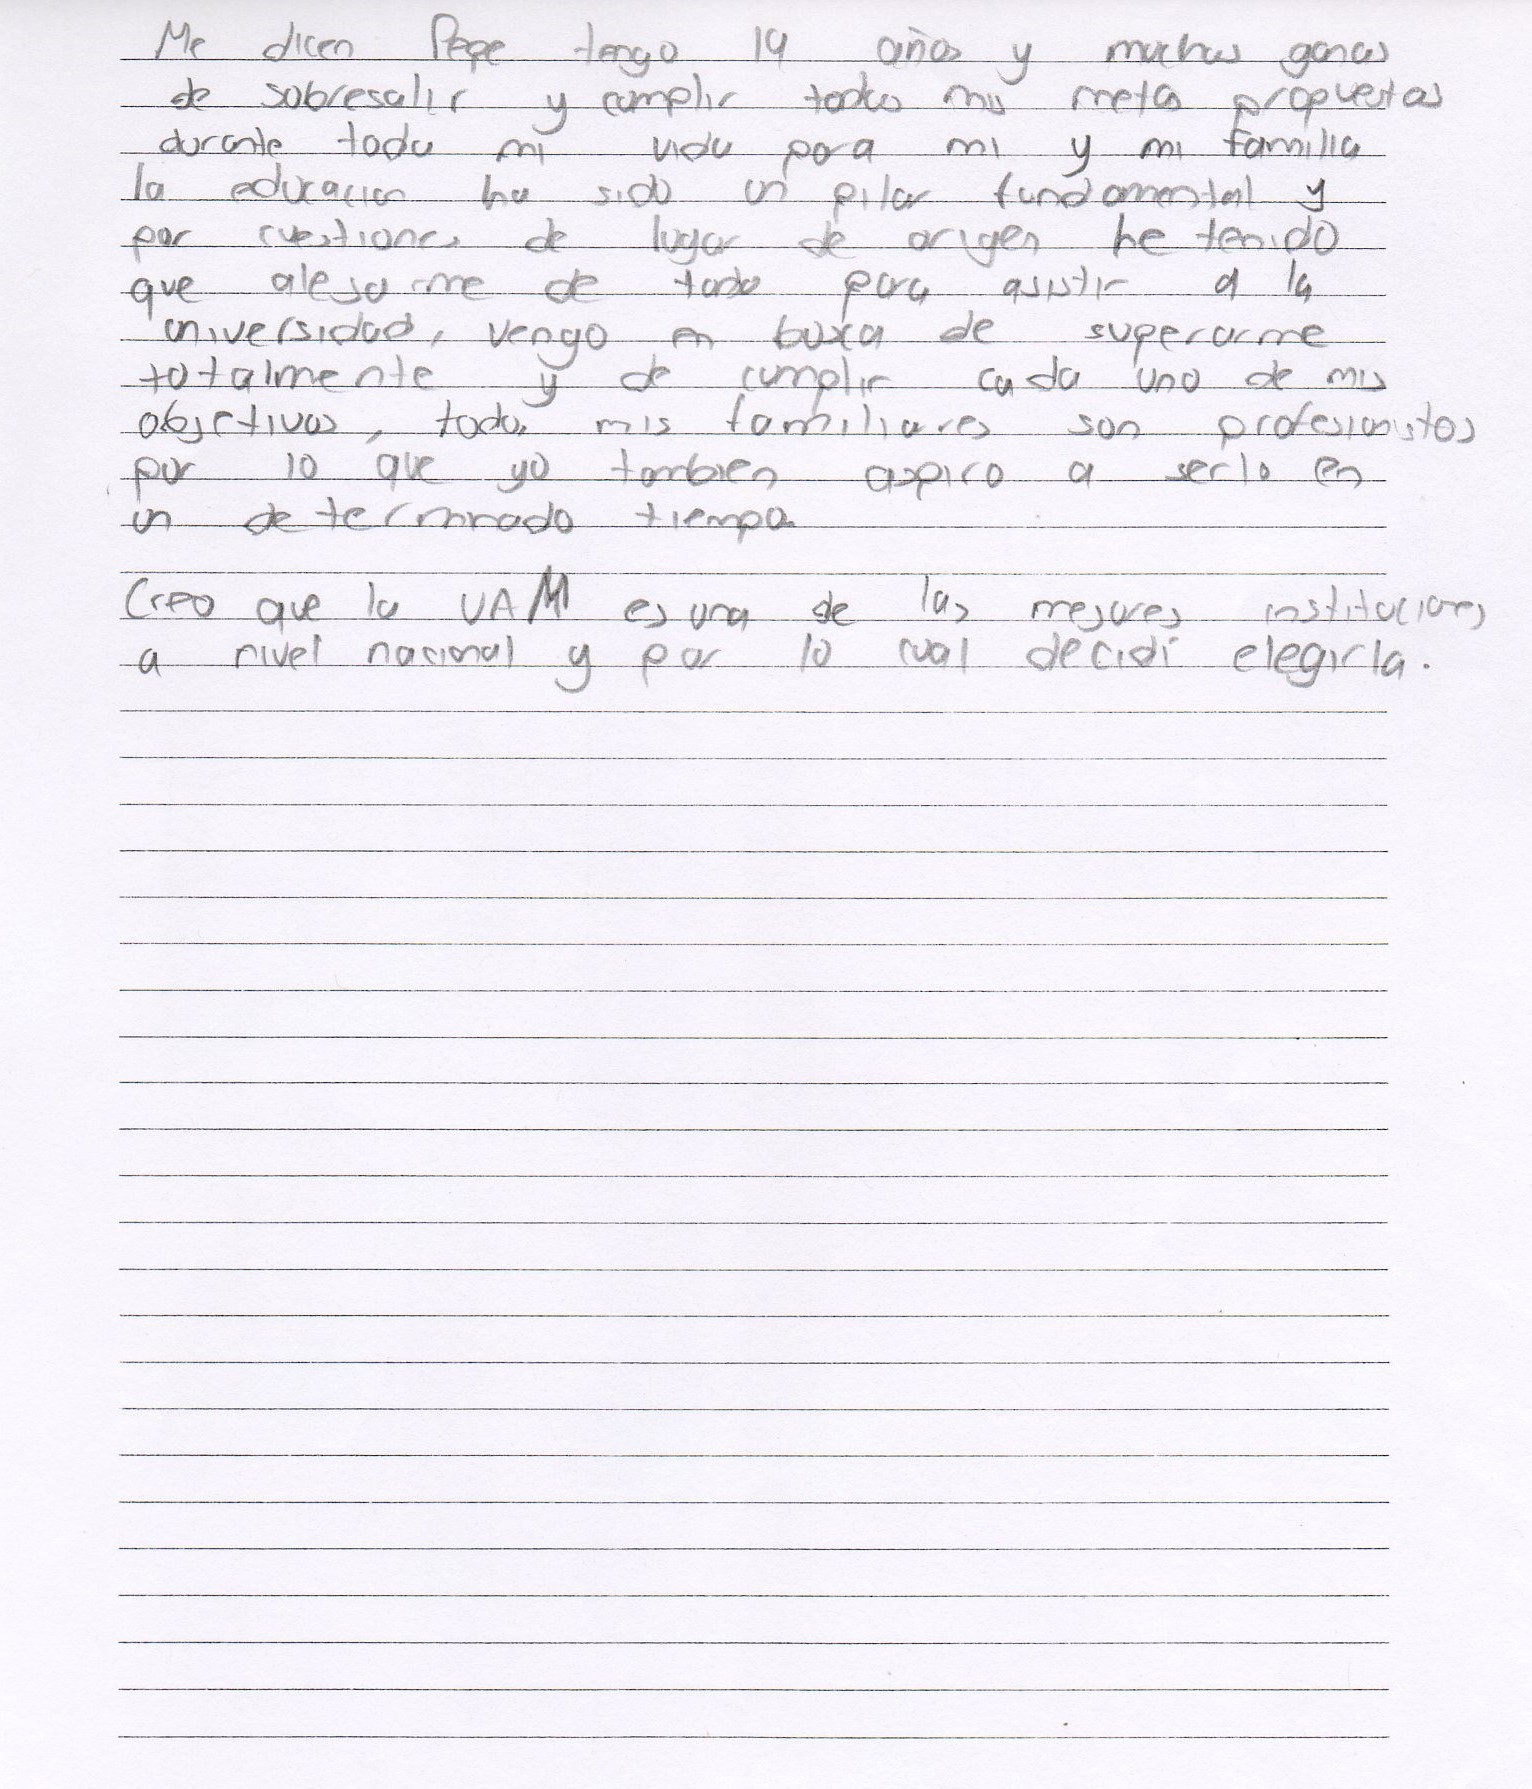 Me dicen Pepe tengo 19 años y muchas ganas
de sobresalir y cumplir todas mis metas propuestas
durante toda mi vida para mi y mi familia
la educacion ha sido un pilar fundamental y
por cuestiones de lugar de origen he tenido
que alejarme de todo para asistir a la
universidad, vengo en busca de superarme
totalmente y de cumplir cada uno de mis
objetivos, todos mis familiares son profesionistas
por lo que yo tambien aspiro a serlo en
un determinado tiempo.
Creo que la UAM es una de las mejores instituciones
a nivel nacional y por lo cual decidí elegirla.